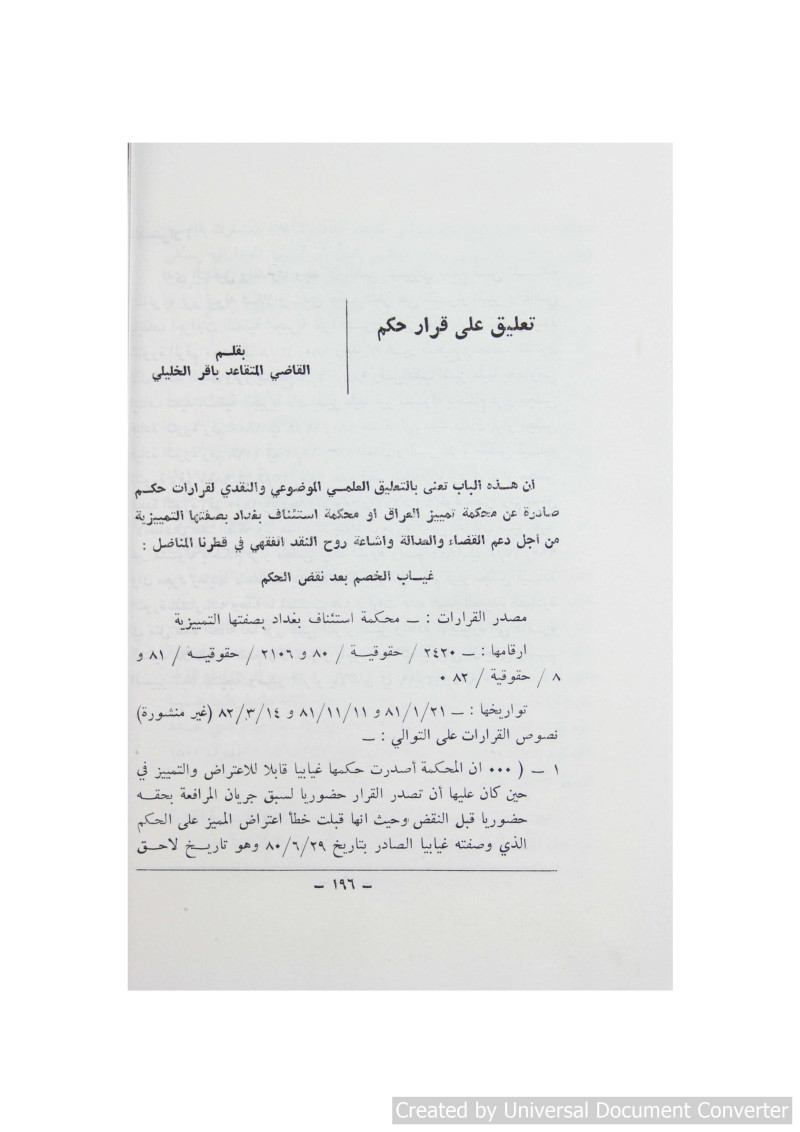 تعليق على قرار حكم
بقلـم
القاضي المتقاعد باقر الخليلي
ان هـذه الباب تعنى بالتعليق العلمـي الموضوعي والنقدي لقرارات حكـم
صادرة عن محكمة تمييز العراق او محكمة استئناف بغداد بصفتها التمييزية
من اجل دعم القضاء والعدالة واشاعة روح النقد الفقهي في قطرنا المناضل :
غيـاب الخصم بعد نقض الحكم
مصدر القرارات : ــ محكمة استئناف بغداد بصفتها التمييزية
ارقامها : ــ ٢٤٢٠ / حقوقيـة / ٨٠ و ٢١٠٦ / حقوقيه / ٨١ و
٨ / حقوقية / ٨٢ ٠
تواريخها : ــ ٨١/١/٢١ و ٨١/١١/١١ و ٨٢/٣/١٤ (غير منشورة)
نصوص القرارات على التوالي : ــ
١ ــ ( ٠٠٠ ان المحكمة أصدرت حكمها غيابيا قابلا للاعتراض والتمييز في
حين كان عليها أن تصدر القرار حضوريا لسبق جريان المرافعة بحقـه
حضوريا قبل النقض وحيث انها قبلت خطأ اعتراض المميز على الحكم
الذي وصفته غيابيا الصادر بتاريخ ٨٠/٦/٢٩ وهو تاريـخ لاحـق
ــ ١٩٦ ــ
Created by Universal Document Converter